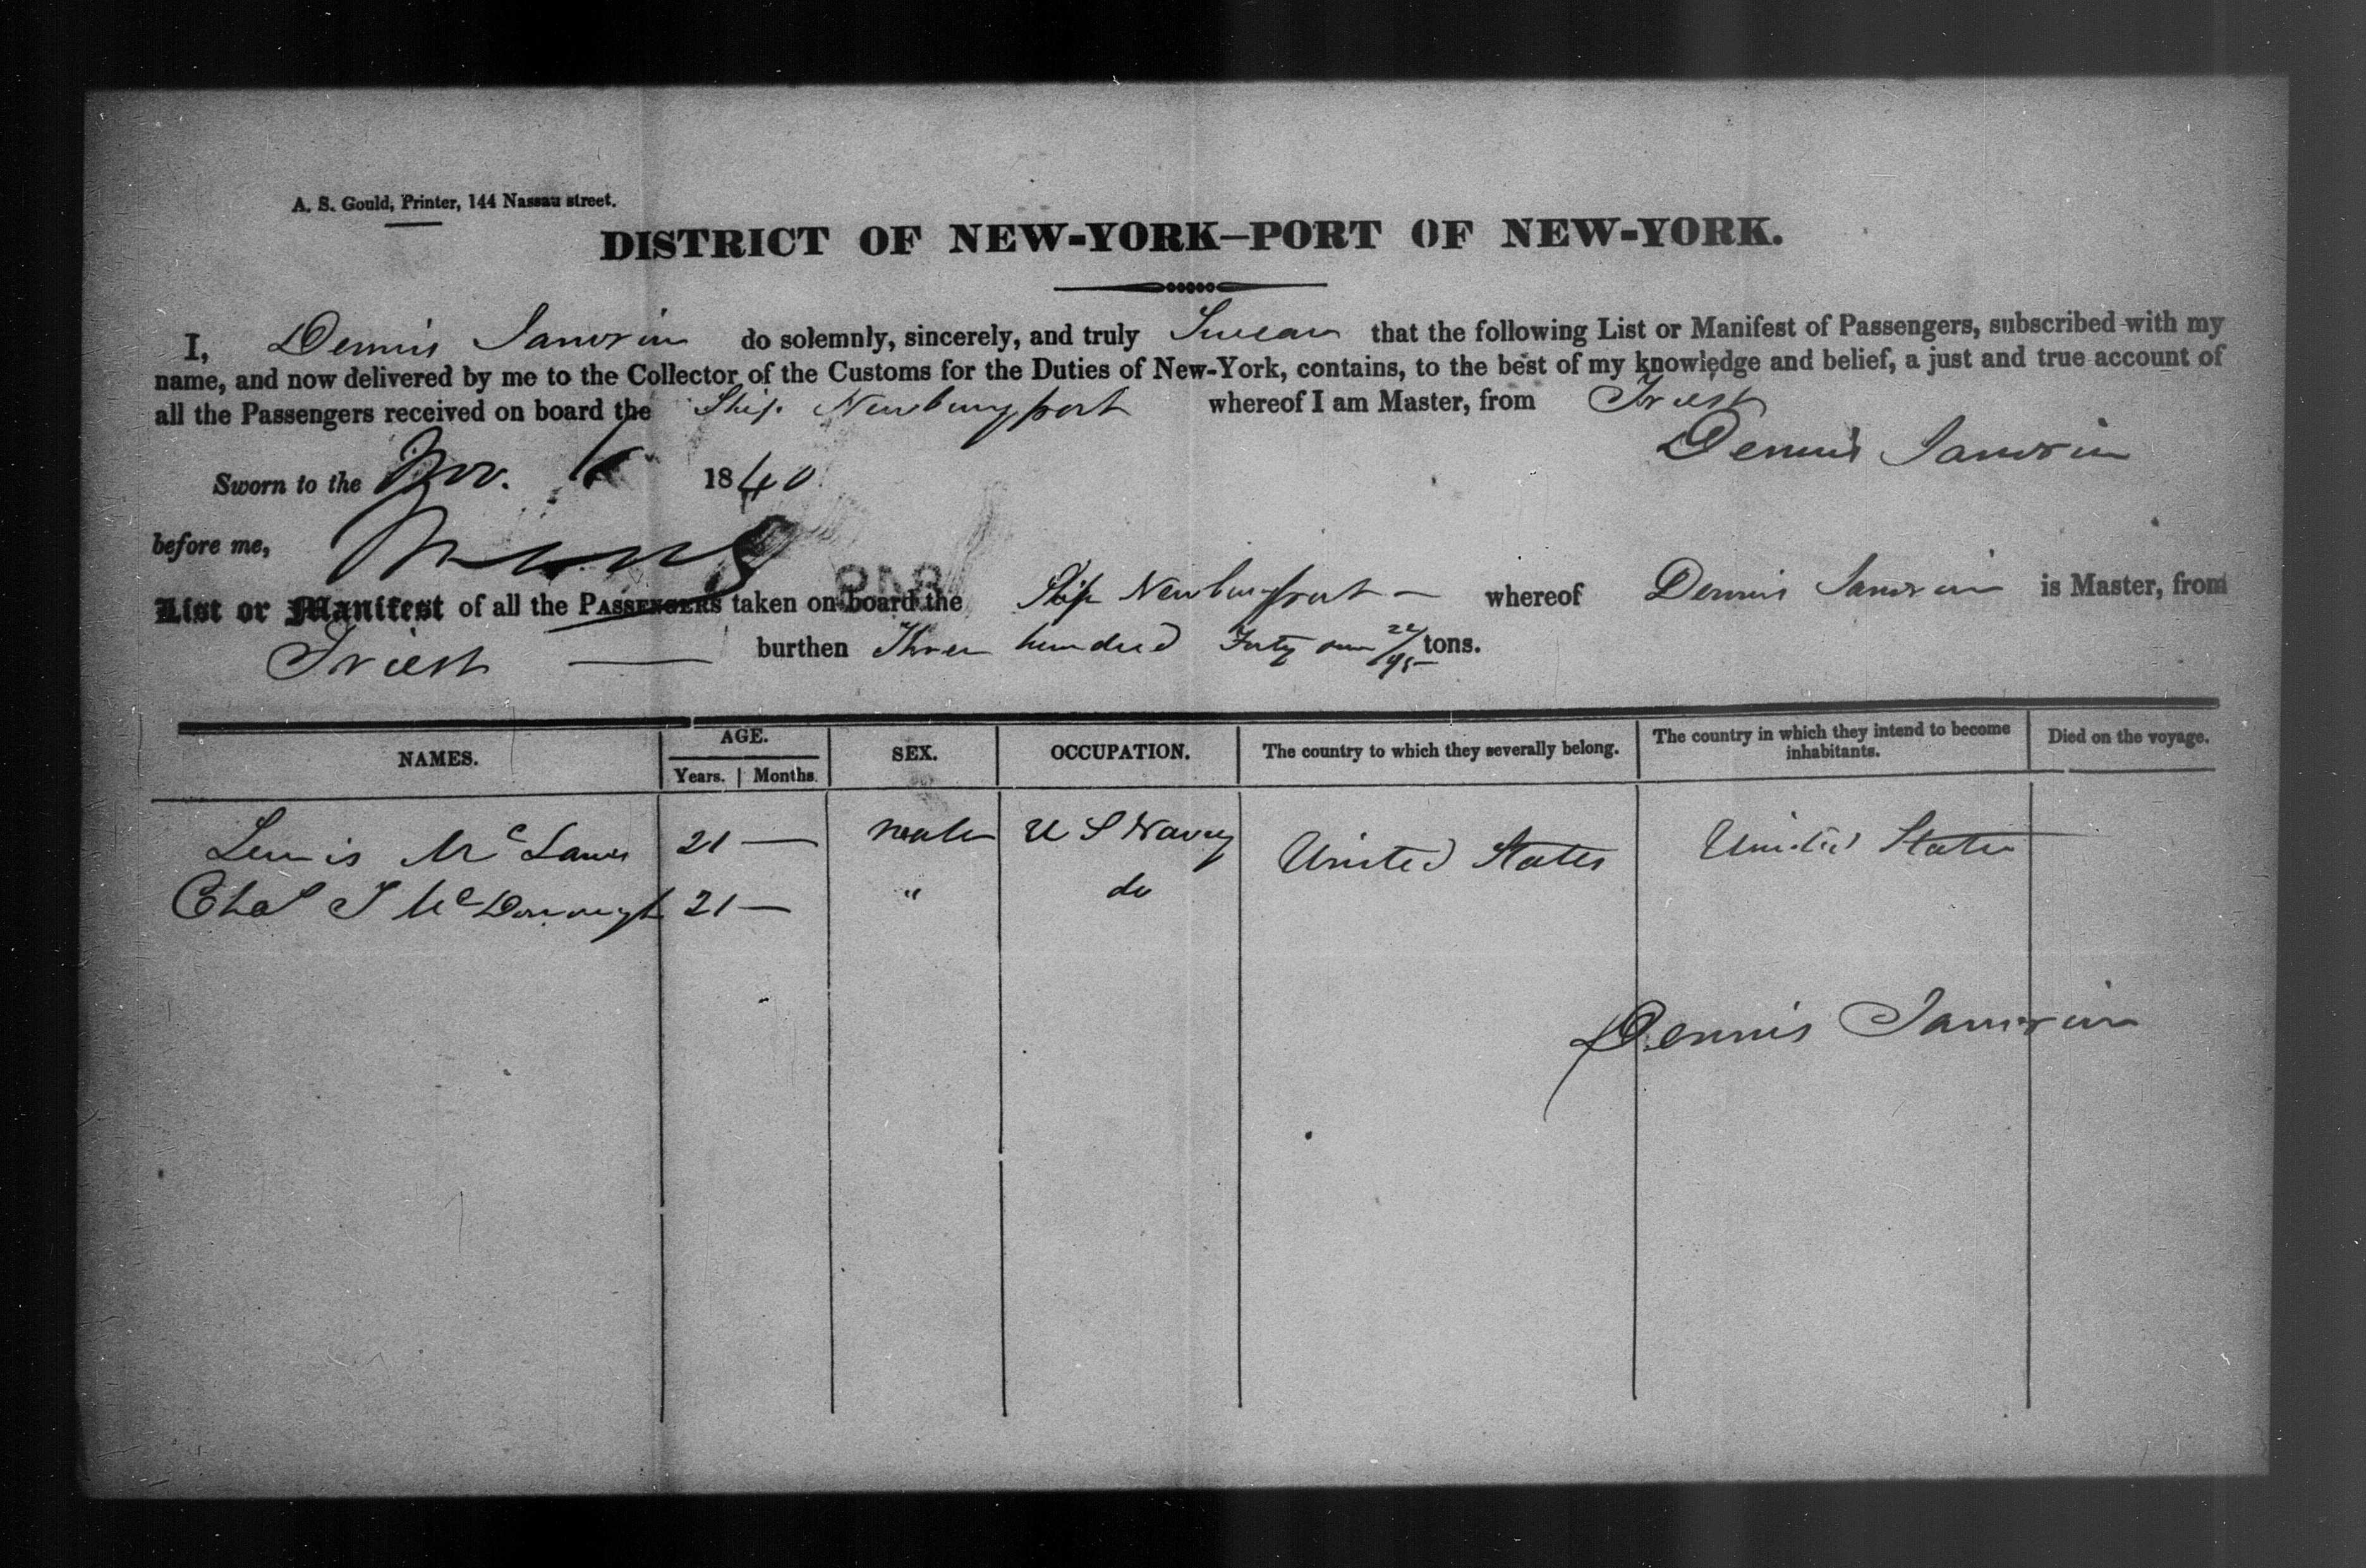 A. S. Gould, Printer, 144 Nassau street.
DISTRICT OF NEW-YORK—PORT OF NEW-YORK.
I, Dennis Janvrin do solemnly, sincerely, and truly Swear that the following List or Manifest of Passengers, subscribed with my
name, and now delivered by me to the Collector of the Customs for the Duties of New-York, contains, to the best of my knowledge and belief, a just and true account of
all the Passengers received on board the Ship Newburyport whereof I am Master, from Triest
Dennis Janvrin
Sworn to the Nov. 1840
before me,
List or Manifest of all the PASSENGERS taken on board the Ship Newburyport — whereof Dennis Janvrin is Master, from
Triest — burthen Three hundred Forty one 22/95 tons.
NAMES. AGE. SEX. OCCUPATION. The country to which they severally belong. The country in which they intend to become inhabitants. Died on the voyage.
Years. | Months.
Lewis McLane 21 — male U S Navy United States United States
Chas S McDonough 21 — " do
Dennis Janvrin